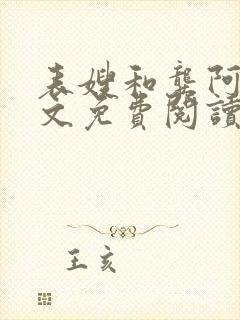 表嫂和龚阿
文免費閱讀
王亥